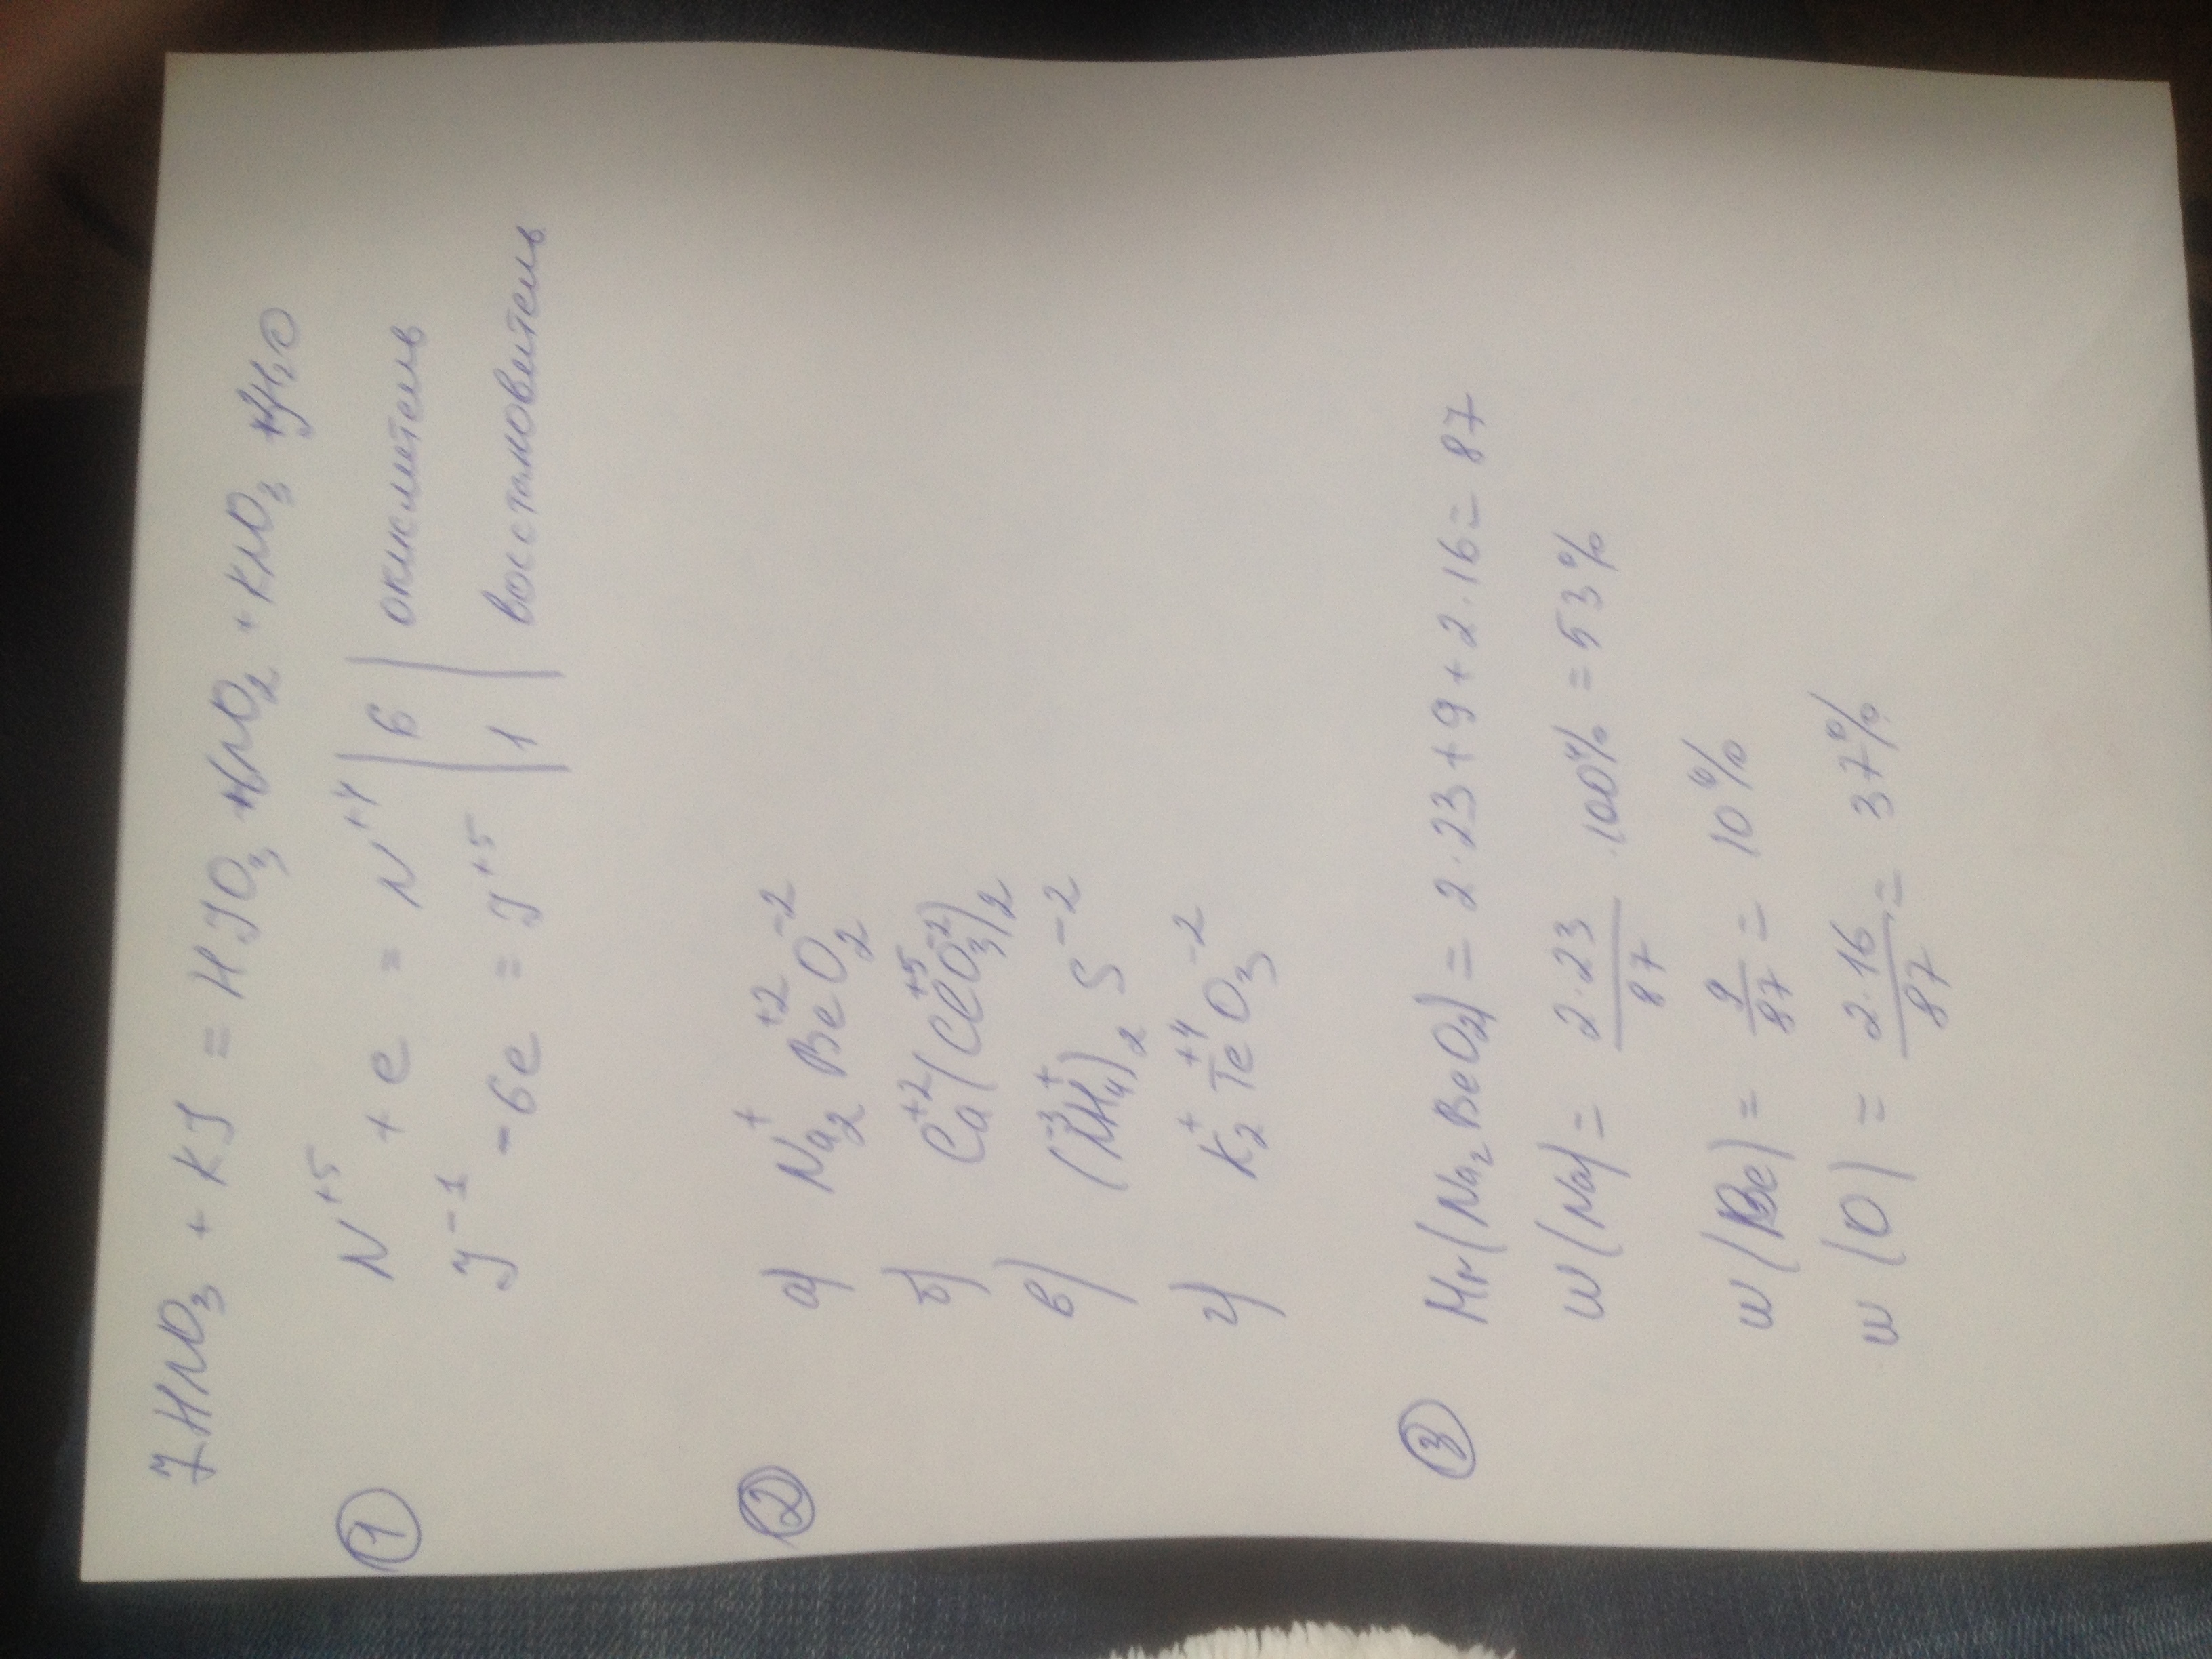 7HNO₃ + KJ = HJO₃ + 6NO₂ + KNO₃ + 3H₂O
① N⁺⁵ + e = N⁺⁴ | 6 | окислитель
J⁻¹ - 6e = J⁺⁵ | 1 | восстановитель
② а) Na₂⁺Be⁺²O₂⁻²
б) Ca⁺²(Cl⁺⁵O₃⁻²)₂
в) (N⁻³H₄⁺)₂S⁻²
г) K₂⁺Te⁺⁴O₃⁻²
③ Mr(Na₂BeO₂) = 2·23+9+2·16 = 87
w(Na) = 2·23/87 · 100% = 53%
w(Be) = 9/87 = 10%
w(O) = 2·16/87 = 37%